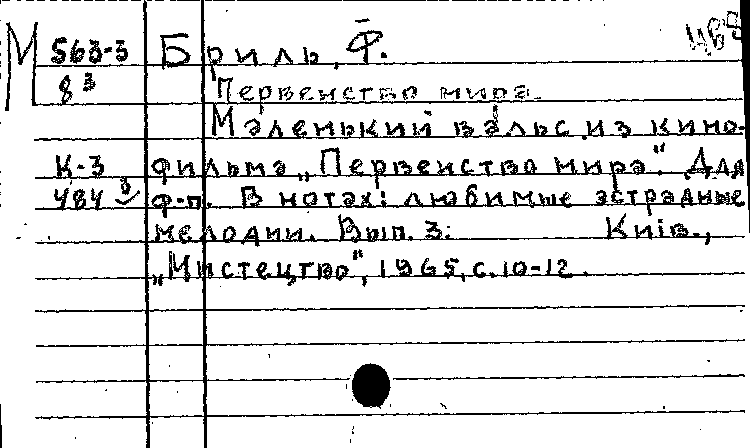 М 563-3 Бриль, Ф.
8³ Первенство мира.
Маленький вальс из кино-
К-3 фильма „Первенство мира". Для
484 ф-п. В нотах: любимые эстрадные
мелодии. Вып. 3. Київ.,
„Мистецтво", 1965, с. 10-12.